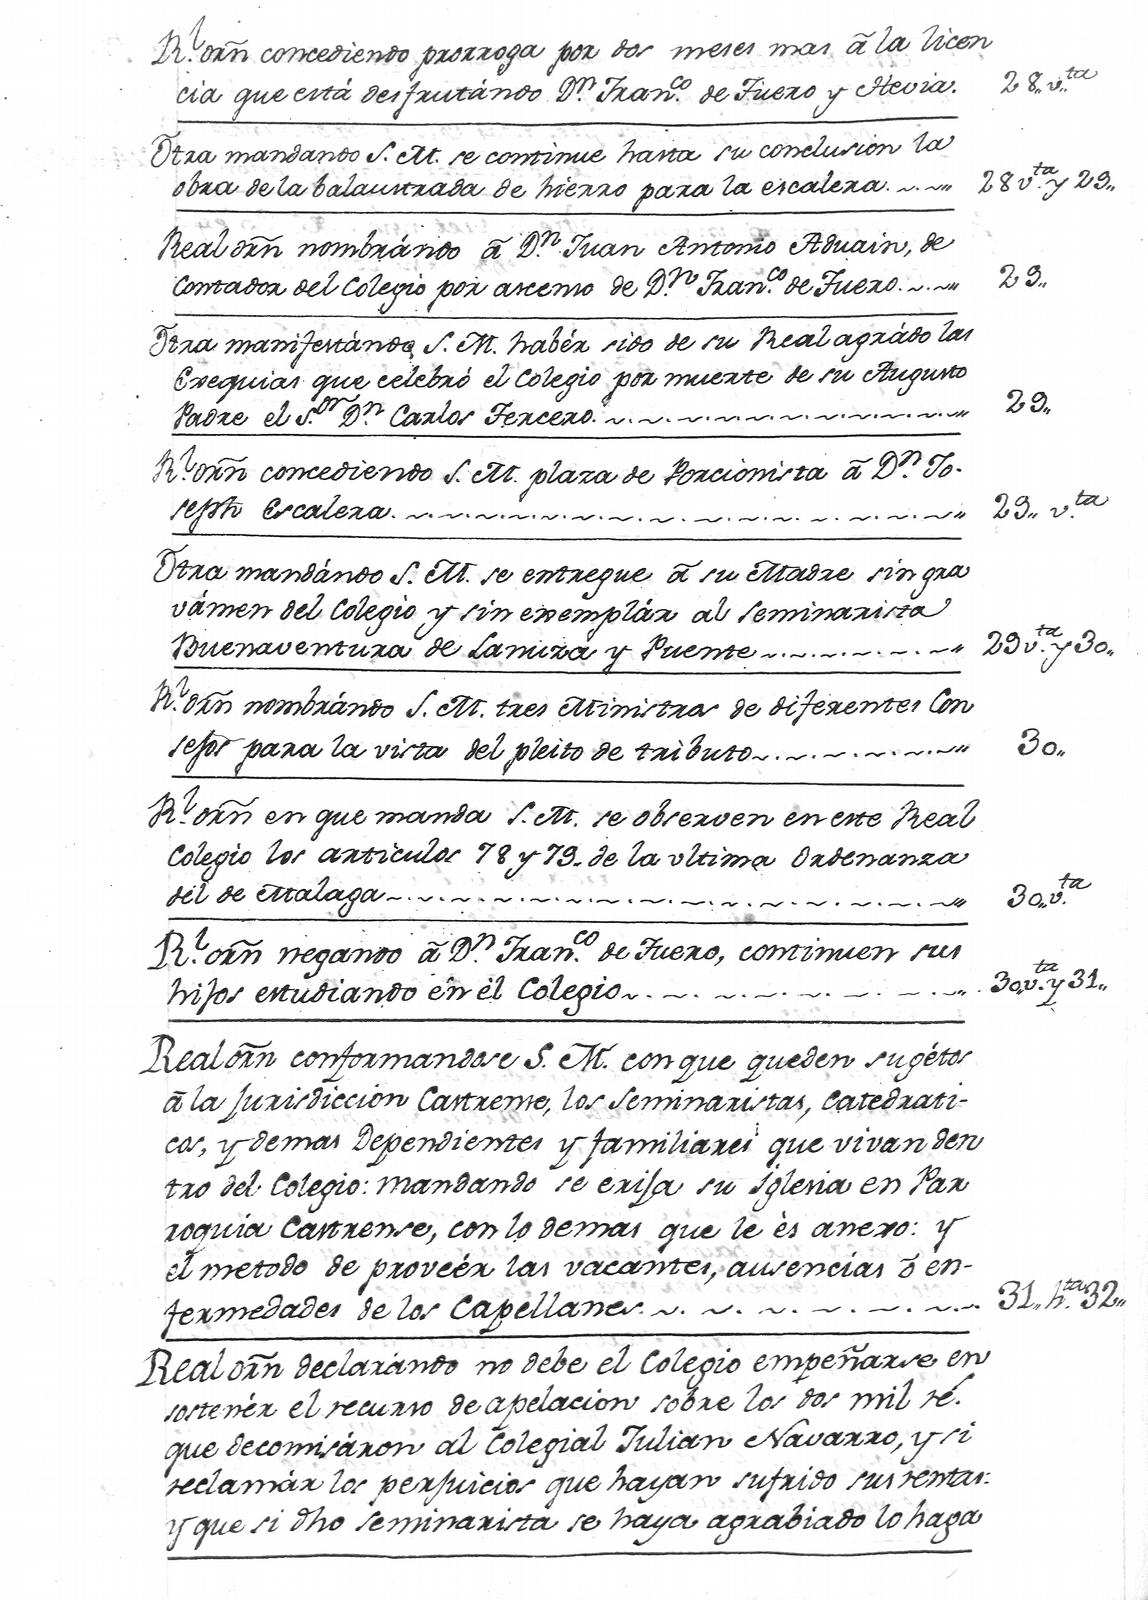 R.l orñ concediendo prorroga por dos meses mas â la licen
cia que está desfrutándo D.n Fran.co de Fuero y Hevia. 28,, v.ta
Otra mandando S. M. se continue hasta su conclusion la
obra de la balaustrada de hierro para la escalera. 28 v.ta y 29,,
Real orñ nombrándo â D.n Juan Antonio Aduain, de
Contador del Colegio por ascenso de D.n Fran.co de Fuero. 29,,
Otra manifestándo S. M. habér sido de su Real agrádo las
Exequias que celebró el Colegio por muerte de su Augusto
Padre el S.or D.n Carlos Tercero. 29,,
R.l orñ concediendo S. M. plaza de Porcionista â D.n Jo-
seph Escalera. 29,, v.ta
Otra mandándo S. M. se entregue â su Madre sin gra
vámen del Colegio y sin exemplár al seminarista
Buenaventura de Lamiza y Puente 29 v.ta y 30,,
R.l orñ nombrándo S. M. tres Ministros de diferentes Con
sejos para la vista del pleito de tributo 30,,
R.l orñ en que manda S. M. se observen en este Real
Colegio los articulos 78 y 79. de la vltima Ordenanza
del de Malaga 30,, v.ta
R.l orñ negando â D.n Fran.co de Fuero, continuen sus
hijos estudiando en el Colegio 30,, v.ta y 31,,
Real orñ conformandose S. M. con que queden sugétos
â la Jurisdiccion Castrense, los Seminaristas, Catedrati-
cos, y demas Dependientes y familiares que vivan den
tro del Colegio: mandando se erija su Iglesia en Par
roquia Castrense, con lo demas que le ès anexo: y
el metodo de proveér las vacantes, ausencias ô en-
fermedades de los Capellanes 31,, h.ta 32,,
Real orñ declarándo no debe el Colegio empeñarse en
sostenér el recurso de apelacion sobre los dos mil rs.
que decomisáron al Colegial Julian Navarro, y si
reclamár los perjuicios que hayan sufrido sus rentas:
y que si dho seminarista se haya agrabiado lo haga